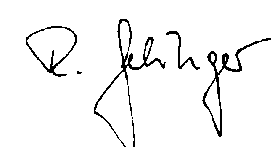 R. Gehringer